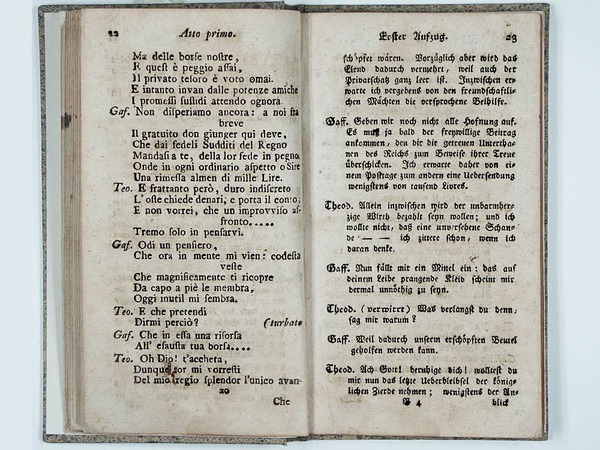 22 Atto primo.
Ma delle borse nostre,
E quest è peggio assai,
Il privato tesoro è voto omai.
E intanto invan dalle potenze amiche
I promessi sussidi attendo ognora.
Gaf. Non disperiamo ancora: a noi sta
breve
Il gratuito don giunger qui deve,
Che dai fedeli Sudditi del Regno
Mandasi a te, della lor fede in pegno
Onde in ogni ordinario aspetto o Sire
Una rimessa almen di mille Lire.
Teo. E frattanto però, duro indiscreto
L'oste chiede denari, e porta il conto,
E non vorrei, che un improvviso af-
fronto.....
Tremo solo in pensarvi.
Gaf. Odi un pensiero,
Che ora in mente mi vien: codesta
veste
Che magnificamente ti ricopre
Da capo a piè le membra,
Oggi inutil mi sembra.
Teo. E che pretendi
Dirmi perciò? (turbato
Gaf. Che in essa una risorsa
All' esausta tua borsa....
Teo. Oh Dio! t'accheta,
Dunque tor mi vorresti
Del mio regio splendor l'unico avan-
20
Che
Erster Aufzug. 23
schöpfet wären. Vorzüglich aber wird das
Elend dadurch vermehrt, weil auch der
Privatschatz ganz leer ist. Inzwischen er-
warte ich vergebens von den freundschaftli-
chen Mächten die versprochne Beihilfe.
Gaff. Geben wir noch nicht alle Hofnung auf.
Es muß ja bald der freywillige Beitrag
ankommen, den dir die getreuen Unterthä-
nen des Reichs zum Beweise ihrer Treue
überschicken. Ich erwarte daher von ei-
nem Posttage zum andern eine Uebersendung
wenigstens von tausend Livres.
Theod. Allein inzwischen wird der unbarmher-
zige Wirth bezahlt seyn wollen; und ich
wollte nicht, daß eine unversehene Schan-
de — — ich zittere schon, wenn ich
daran denke.
Gaff. Nun fällt mir ein Mittel ein: das auf
deinem Leibe prangende Kleid scheint mir
dermal unnöthig zu seyn.
Theod. (verwirrt) Was verlangst du denn,
sag mir warum?
Gaff. Weil dadurch unserm erschöpften Beutel
geholfen werden kann.
Theod. Ach Gott! beruhige dich! wolltest du
mir nun das letzte Ueberbleibsel der königs-
lichen Zierde nehmen; wenigstens der An-
B 4 blick